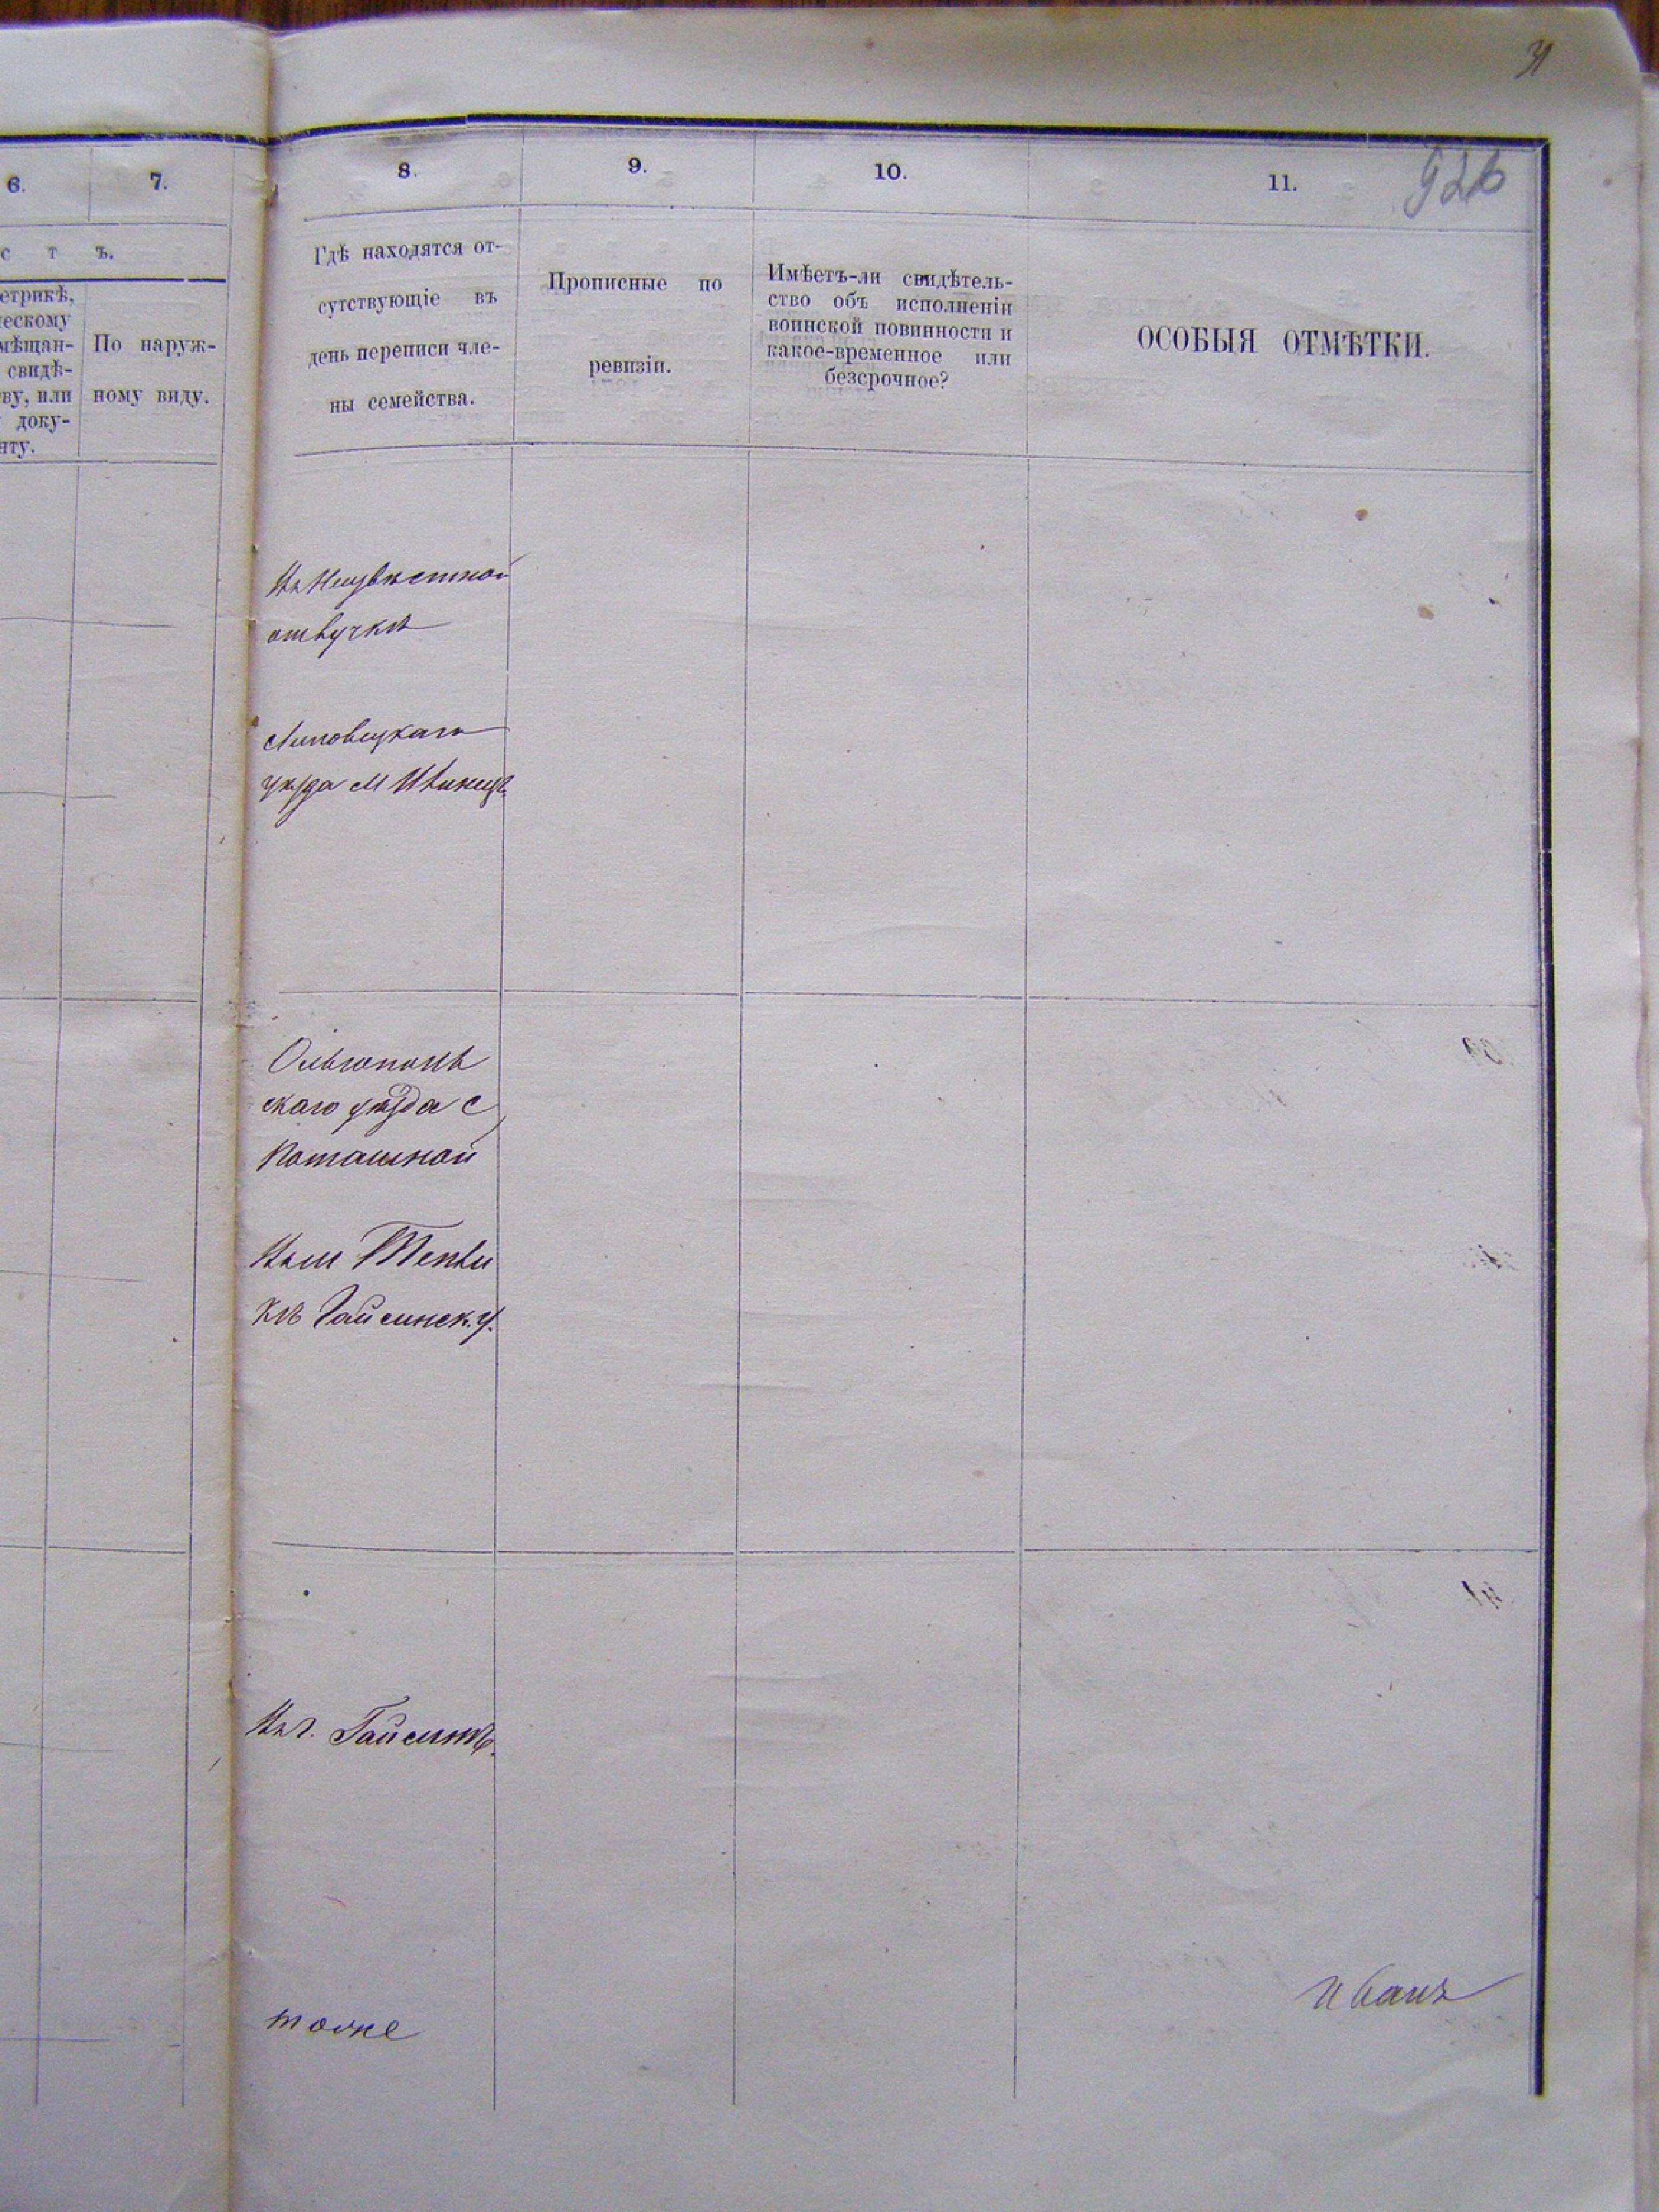 31
926
6.
7.
8.
9.
10.
11.
с т ъ.
етрикѣ,
ческому
мѣщан-
свидѣ-
ву, или
доку-
нту.
По наруж-
ному виду.
Гдѣ находятся от-
сутствующіе въ
день переписи чле-
ны семейства.
Прописные по
ревизіи.
Имѣетъ-ли свидѣтель-
ство объ исполненіи
воинской повинности и
какое-временное или
безсрочное?
ОСОБЫЯ ОТМѢТКИ.
Въ неизвѣстной
отлучкѣ
Липовецкаго
уѣзда М
Ольгополь
скаго уѣзда с
Поташной
Въ м Тепли
кѣ Гайсинск. у.
Въ г. Гайсинѣ.
тоже
Иванъ